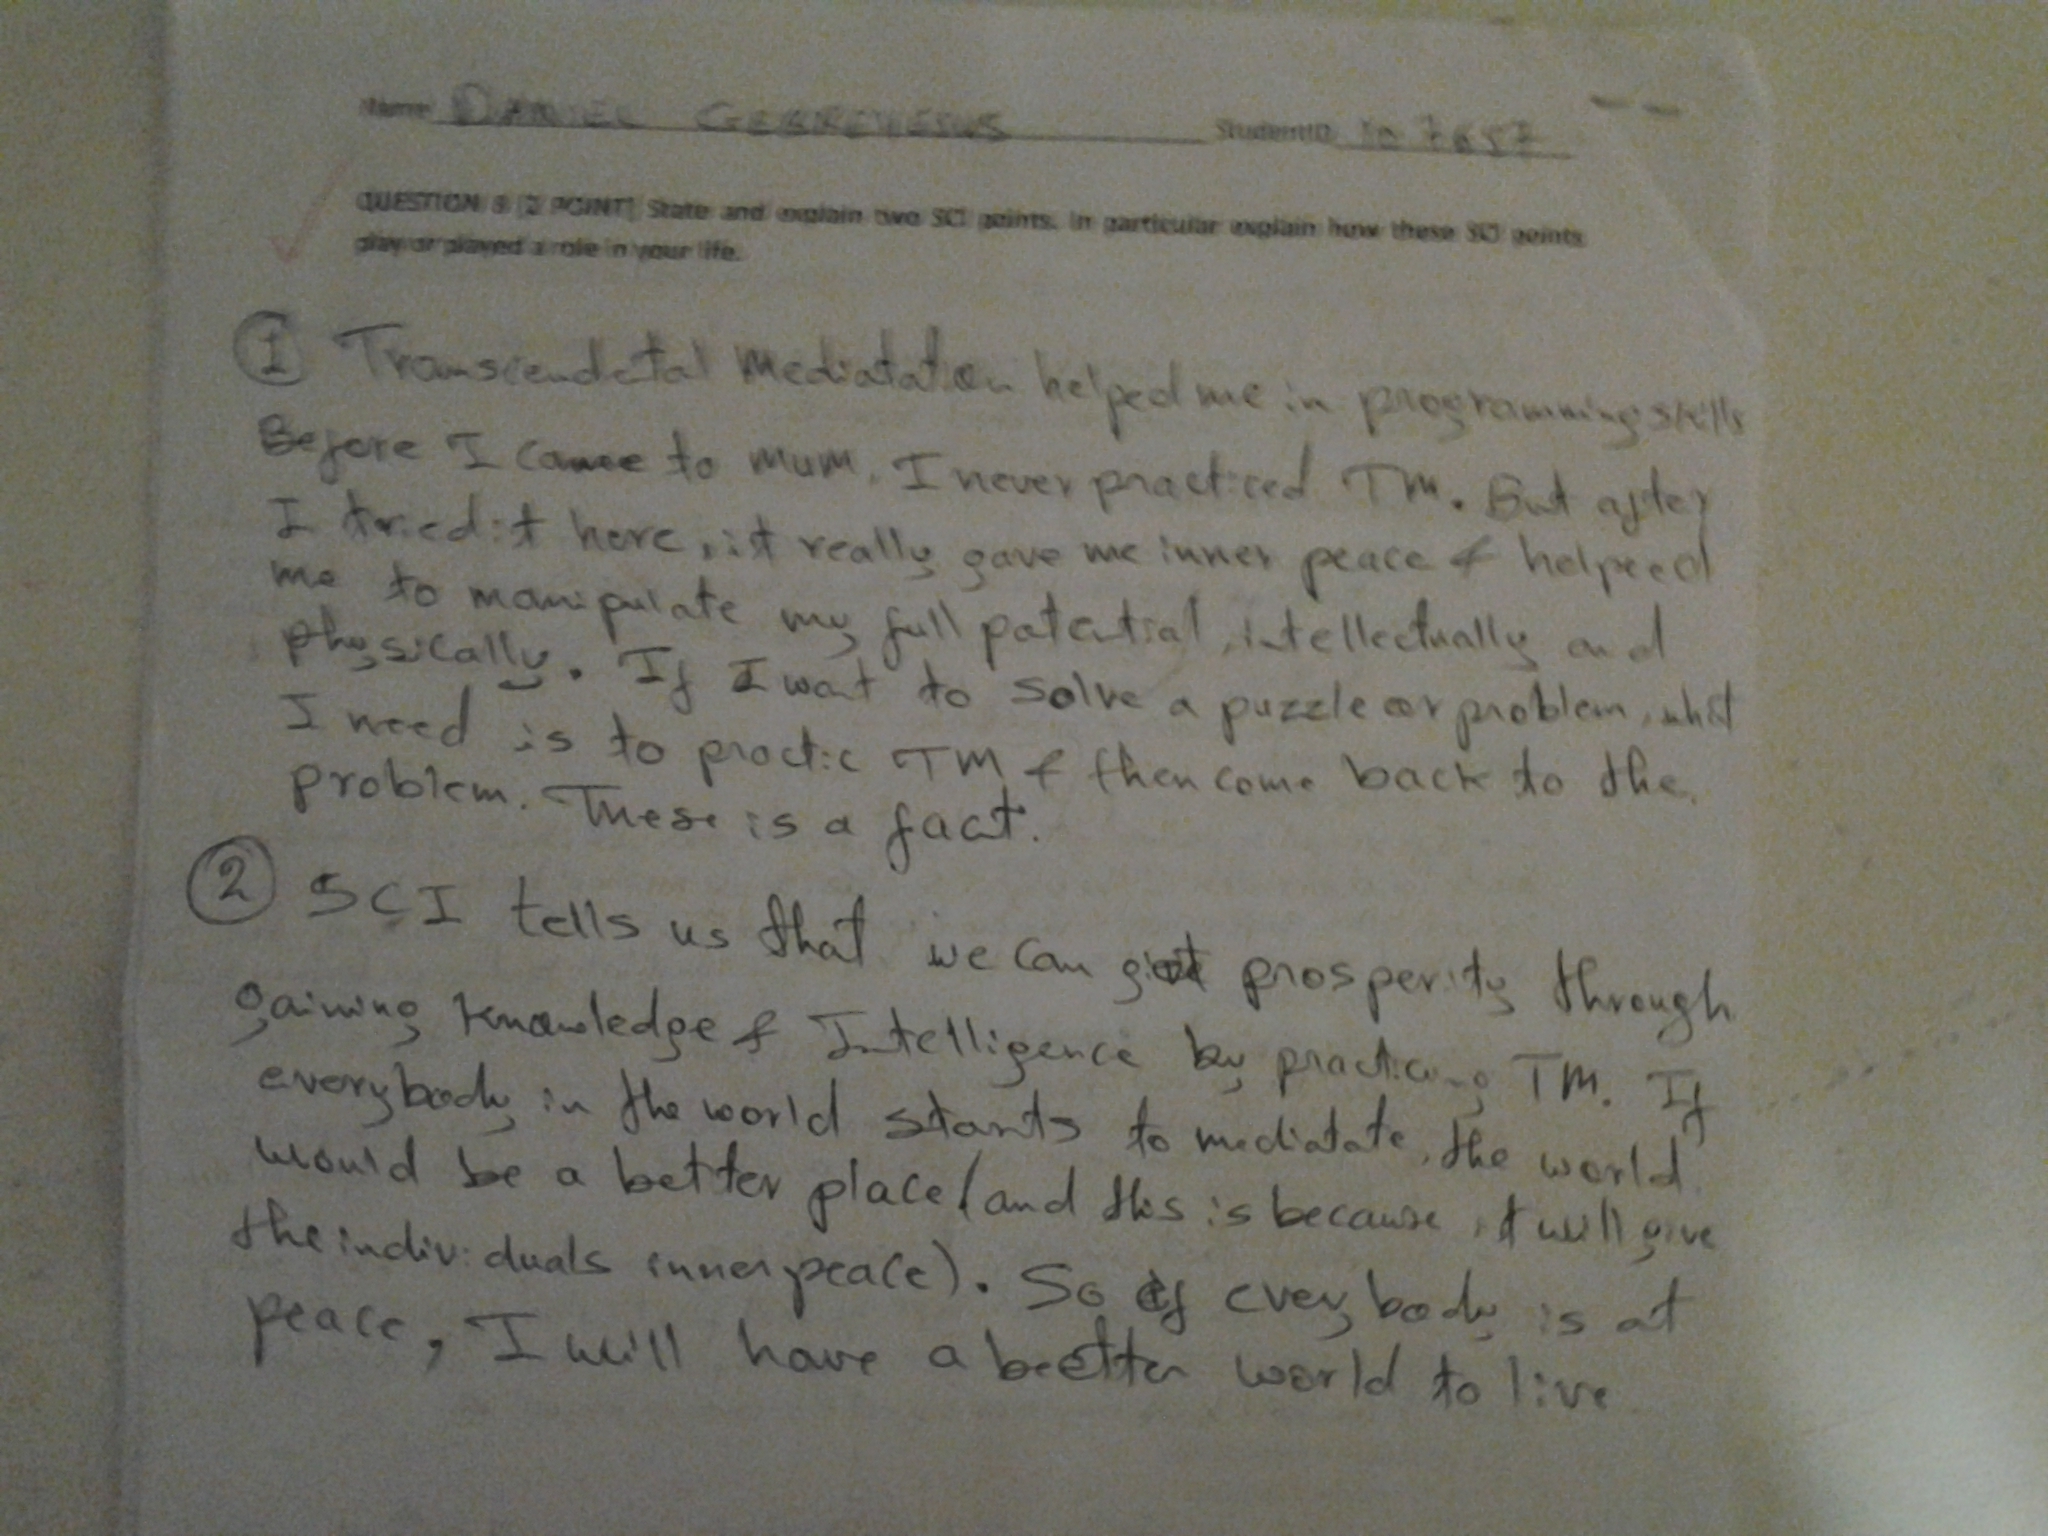 Name DANIEL GEBREYESUS StudentID
QUESTION 8 [2 POINT] State and explain two SCI points. In particular explain how these SCI points
play or played a role in your life.
① Transcendetal Mediatation helped me in programming skills
Before I came to MUM, I never practiced TM. But after
I tried it here, it really gave me inner peace & helpeed
me to manipulate my full patential, intellectually and
physically. If I want to solve a puzzle or problem, what
I need is to practic TM & then come back to the
problem. These is a fact.
② SCI tells us that we can get prosperity through
gaining knowledge & Intelligence by practicing TM. If
everybody in the world starts to mediatate, the world
would be a better place (and this is because it will give
the individuals inner peace). So if everybody is at
peace, I will have a beetter world to live